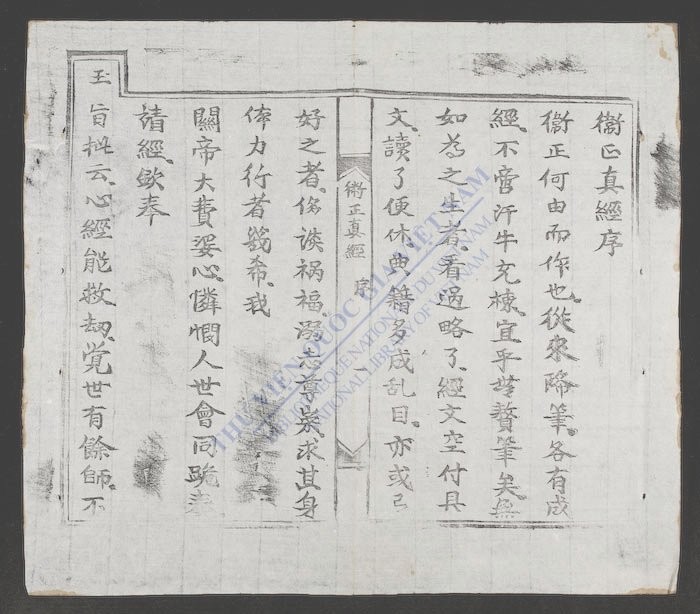 衛正真經序
衛正何由而作也。從來降筆。各有成
經。不啻汗牛充棟。宜乎無贅筆矣。無
如為之生者。看過略了。經文空付具
文。讀了便休。典籍多成乱目。亦或已
衛正真經 序 一
好之者。侈談禍福。罔志尊崇。求其身
体力行者幾希。我
關帝大費婆心。憐憫人世。會同跪奉
請經。欽奉
玉
旨批云。心經能救劫。覚世有餘師。不
THƯ VIỆN QUỐC GIA VIỆT NAM
BIBLIOTHEQUE NATIONALE DU VIETNAM
NATIONAL LIBRARY OF VIETNAM